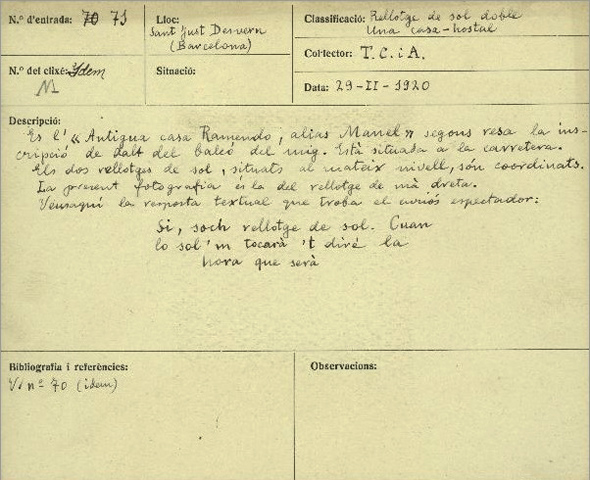 N.º d'entrada: 70 71
Lloc:
Sant Just Desvern
(Barcelona)
Classificació: Rellotge de sol doble
Una casa-hostal
N.º del clixé: Idem
M
Situció:
Col·lector: T. C. i A.
Data: 29-II-1920
Descripció:
Es l' « Antigua casa Ramendo, alias Manel » segons resa la ins-
cripció de dalt del balcó del mig. Està situada a la carretera.
Els dos rellotges de sol, situats al mateix nivell, són coordinats.
La present fotografia és la del rellotge de mà dreta.
Veusaquí la resposta textual que troba el curiós espectador:
Si, soch rellotge de sol. Cuan
lo sol 'm tocarà 't diré la
hora que serà
Bibliografia i referències:
nº 70 (idem)
Observacions: